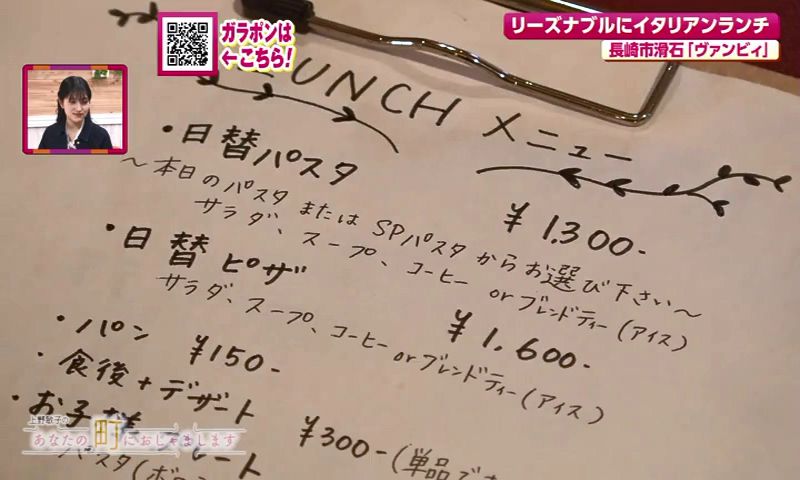 リーズナブルにイタリアンランチ
長崎市滑石「ヴァンビィ」
ガラポンは
←こちら!
UNCH メニュー
・日替パスタ ¥1,300-
〜本日のパスタ または SPパスタからお選び下さい〜
サラダ、スープ、コーヒー or ブレンドティー(アイス)
・日替ピザ ¥1,600-
サラダ、スープ、コーヒー or ブレンドティー(アイス)
・パン ¥150-
・食後+デザート ¥300-(単品でき
・お子様プレート
パスタ(ボロ
上野敏子の
あなたの町におじゃまします